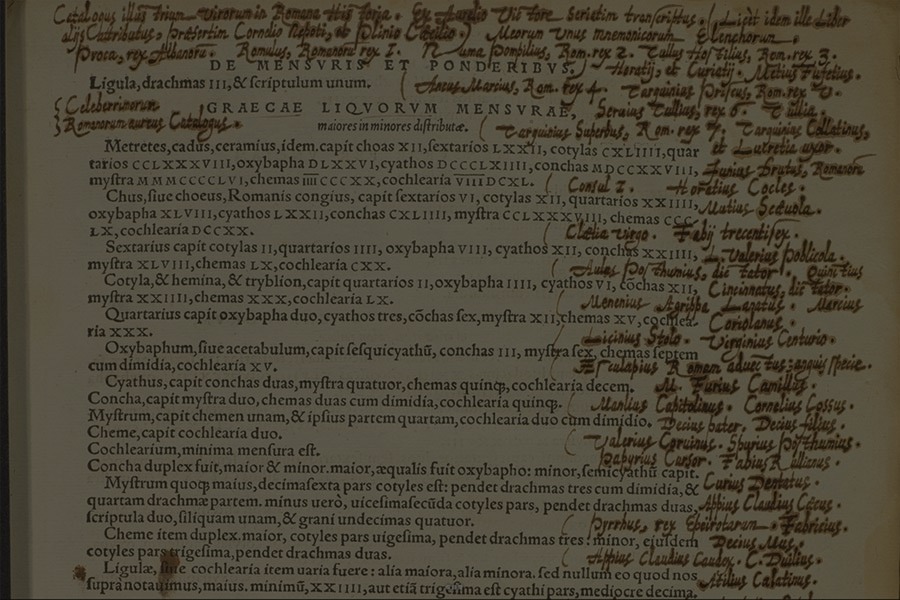 Catalogus illustrium virorum in Romana Historia. Ex Aurelio Victore Scrietim transcriptus. (Licèt idem ille Liber
alijs Cattributus, præsertim Cornelio Nepoti, et Plinio Cæcilio.) Meorum unus mnemonicorum Elenchorum.
Proca, rex Albanorū. Romulus, Romanorū rex 1. Numa Pompilius, Rom. rex 2. Tullus Hostilius, Rom. rex 3.
DE MENSVRIS ET PONDERIBVS. Horatij, et Curiatij. Metius Fufetius.
Ligula, drachmas III, & scriptulum unum. Ancus Marcius, Rom. rex 4. Tarquinius Priscus, Rom. rex V.
Celeberrimorum GRAECAE LIQVORVM MENSVRAE, Seruius Tullius, rex 6. Tullia.
Romanorum aureus Catalogus. maiores in minores distributæ. Tarquinius Superbus, Rom. rex 7. Tarquinius Collatinus,
Metretes, cadus, ceramius, idem. capit choas XII, sextarios LXXII, cotylas CXLIIII, quar et Lucretia uxor.
tarios CCLXXXVIII, oxybapha DLXXVI, cyathos DCCCLXIIII, conchas MDCCXXVIII, Junius brutus, Romanorū
mystra MMMCCCCLVI, chemas IIIICCCXX, cochlearia VIIIDCXL. Consul 1. Horatius Cocles.
Chus, siue choeus, Romanis congius, capit sextarios VI, cotylas XII, quartarios XXIIII, Mutius Scæuola.
oxybapha XLVIII, cyathos LXXII, conchas CXLIIII, mystra CCLXXXVIII, chemas CCC
LX, cochlearia DCCXX. Clælia virgo. Fabij trecenti sex.
Sextarius capit cotylas II, quartarios IIII, oxybapha VIII, cyathos XII, conchas XXIIII, L. Valerius Poblicola.
mystra XLVIII, chemas LX, cochlearia CXX. Aulus Posthumius, dictator. Quintius
Cotyla, & hemina, & tryblion, capit quartarios II, oxybapha IIII, cyathos VI, cochas XII, Cincinnatus, dictator.
mystra XXIIII, chemas XXX, cochlearia LX. Menenius Agrippa Lanatus. Marcius
Quartarius capit oxybapha duo, cyathos tres, cōchas sex, mystra XII, chemas XV, cochlea- Coriolanus.
ria XXX. Licinius Stolo. Virginius Centurio.
Oxybaphum, siue acetabulum, capit sesquicyathū, conchas III, mystra sex, chemas septem
cum dimidia, cochlearia XV. Æsculapius Romam aduectus: anguis specie.
Cyathus, capit conchas duas, mystra quatuor, chemas quinq;, cochlearia decem. M. Furius Camillus.
Concha, capit mystra duo, chemas duas cum dimidia, cochlearia quinq;. Manlius Capitolinus. Cornelius Cossus.
Mystrum, capit chemen unam, & ipsius partem quartam, cochlearia duo cum dimidio. Decius pater. Decius filius.
Cheme, capit cochlearia duo. Valerius Coruinus. Spurius Posthumius.
Cochlearium, minima mensura est. Papyrius Cursor. Fabius Rullianus.
Concha duplex fuit, maior & minor. maior, æqualis fuit oxybapho: minor, semicyathū capit.
Mystrum quoq; maius, decimasexta pars cotyles est: pendet drachmas tres cum dimidia, & Curius Dentatus.
quartam drachmæ partem. minus uerò, uicesimasecūda cotyles pars, pendet drachmas duas, Appius Claudius Cæcus.
scriptula duo, siliquam unam, & grani undecimas quatuor. Pyrrhus, rex Epeirotarum. Fabricius.
Cheme item duplex. maior, cotyles pars uigesima, pendet drachmas tres: minor, eiusdem Decius Mus.
cotyles pars trigesima, pendet drachmas duas. Appius Claudius Caudex. C. Duilius.
Ligulæ, siue cochlearia item uaria fuere: alia maiora, alia minora. sed nullum eo quod nos Atilius Calatinus.
supra notauimus, maius. minimū, XXIIII, aut etiā trigesima est cyathi pars, mediocre decima.